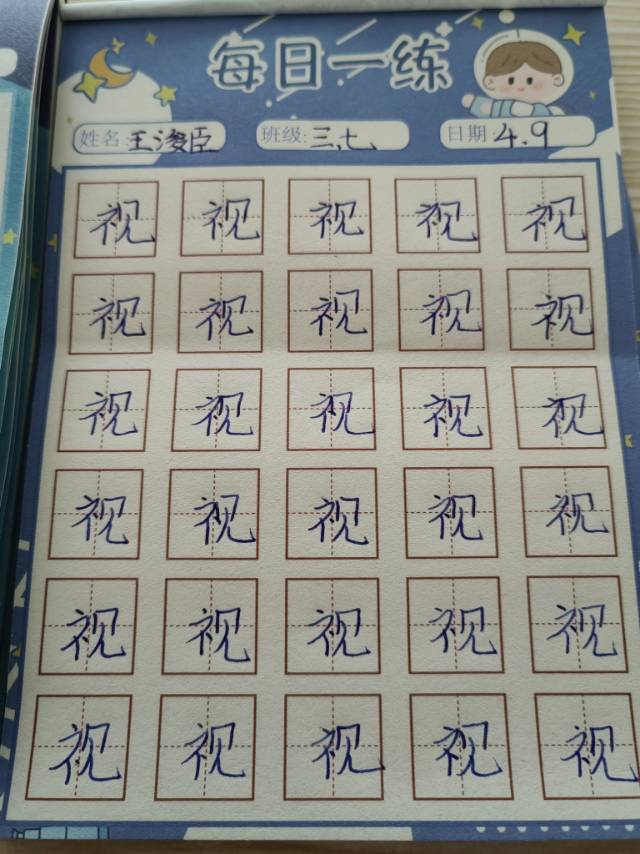 每日一练
姓名:王浚臣 班级:三.七 日期 4.9
视 视 视 视 视
视 视 视 视 视
视 视 视 视 视
视 视 视 视 视
视 视 视 视 视
视 视 视 视 视